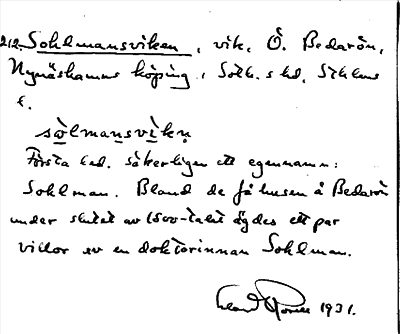 212. Sohlmansviken, vik, Ö. Bedarön,
Nynäshamns köping, Soth. skd, Sthlms
l.
sòlmansvìkn̥
Första led. säkerligen ett egennamn:
Sohlman. Bland de få husen å Bedarön
under slutet av 1800-talet ägdes ett par
villor av en doktorinnan Sohlman.
1931.